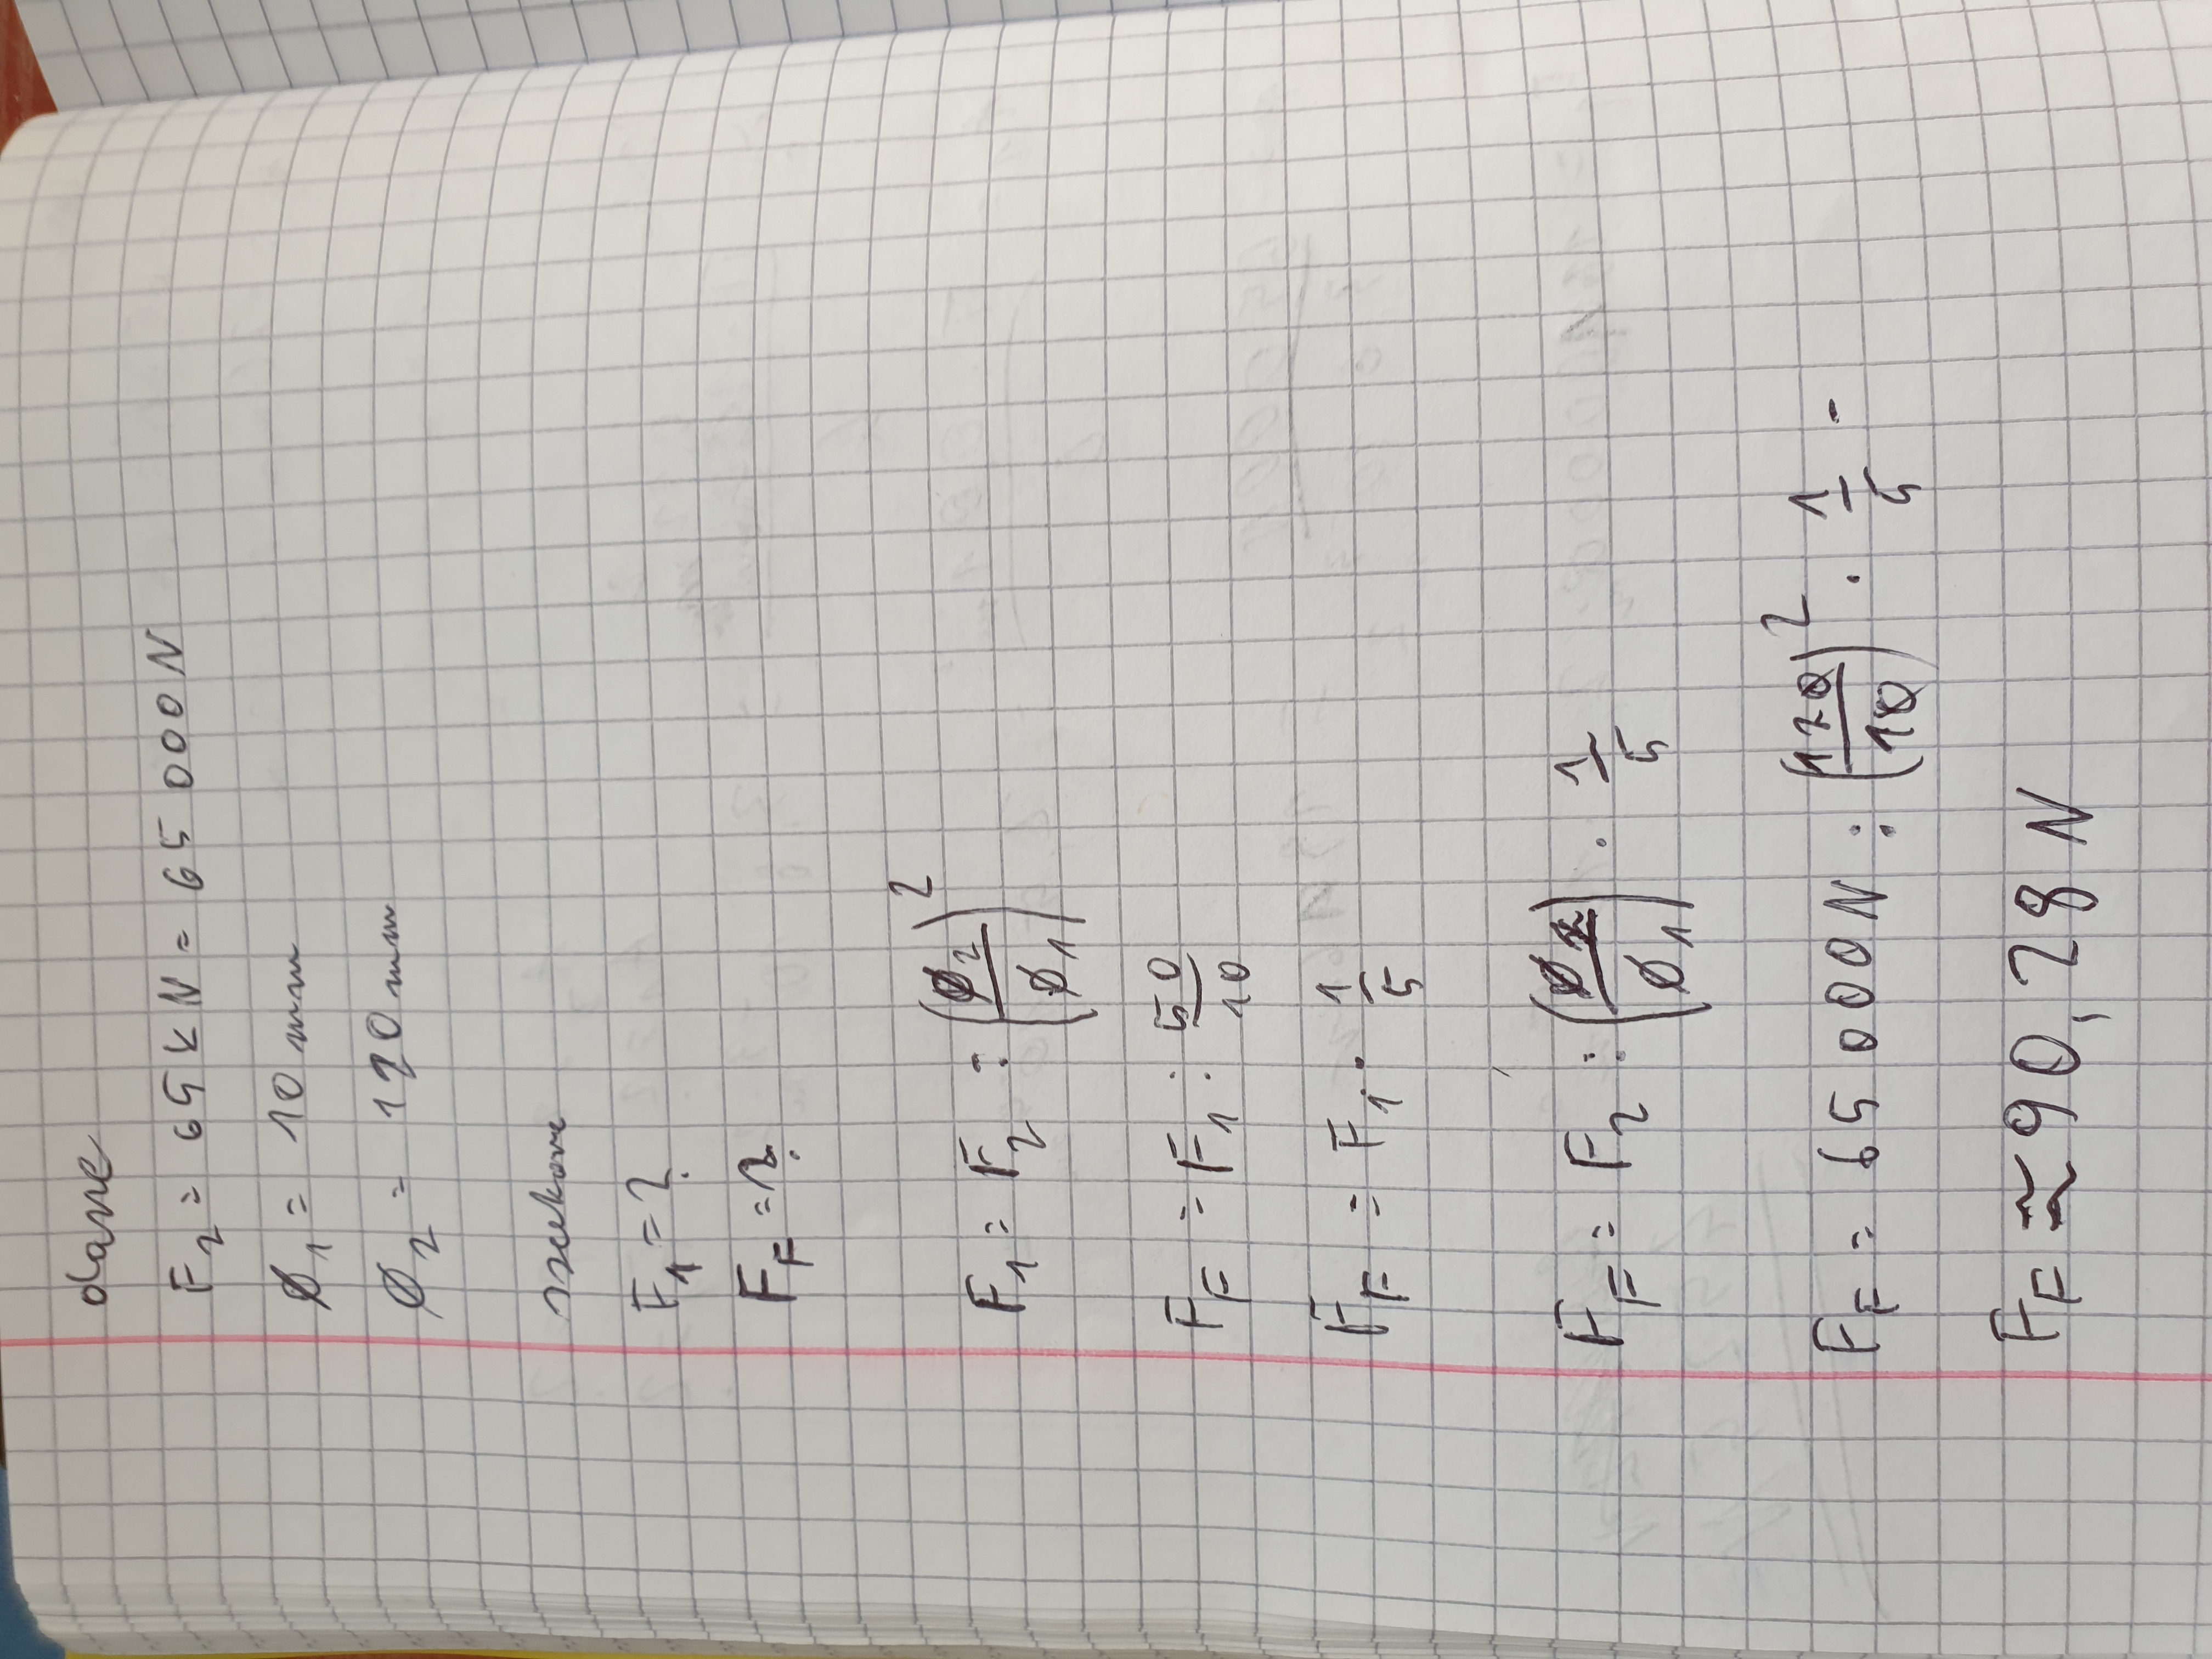 dane
F₂ = 65 kN = 65 000 N
Ø₁ = 10 mm
Ø₂ = 120 mm
szukane
F₁ = ?
F_F = ?
F₁ = F₂ : (Ø₂/Ø₁)²
F_F = F₁ : 50/10
F_F = F₁ · 1/5
F_F = F₂ : (Ø₂/Ø₁) · 1/5
F_F = 65 000 N : (120/10)² · 1/5 =
F_F ≈ 90,28 N